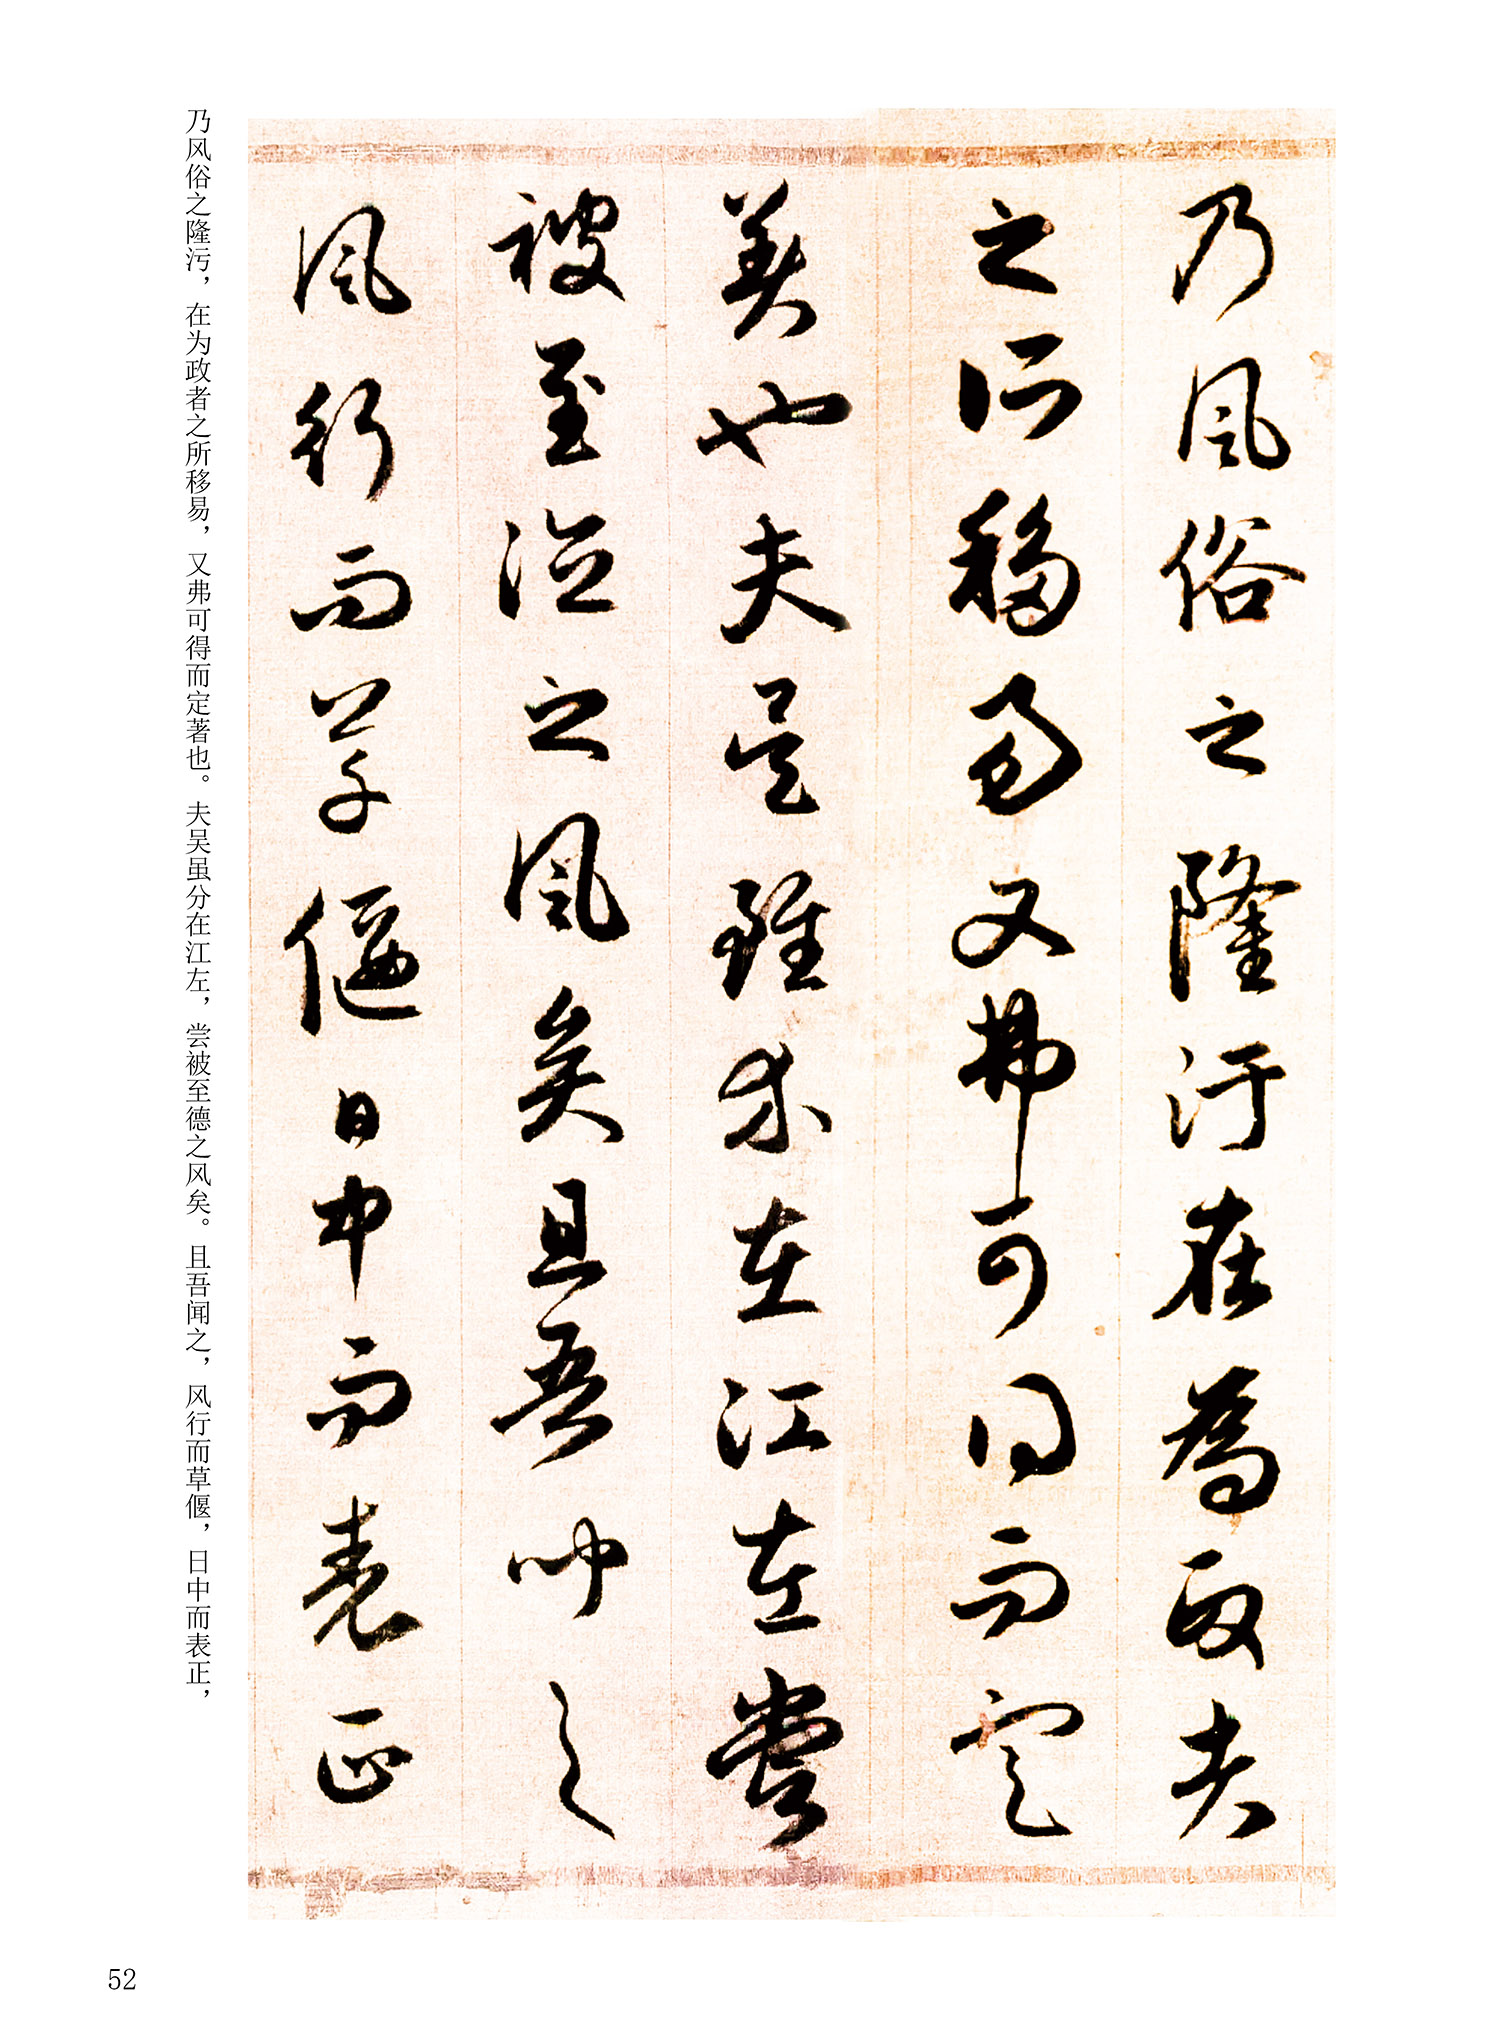 乃風俗之隆汙在為政者
之所移易又弗可得而定
著也夫吳雖分在江左嘗
被至德之風矣且吾聞之
風行而草偃日中而表正
乃风俗之隆污，在为政者之所移易，又弗可得而定著也。夫吴虽分在江左，尝被至德之风矣。且吾闻之，风行而草偃，日中而表正，
52